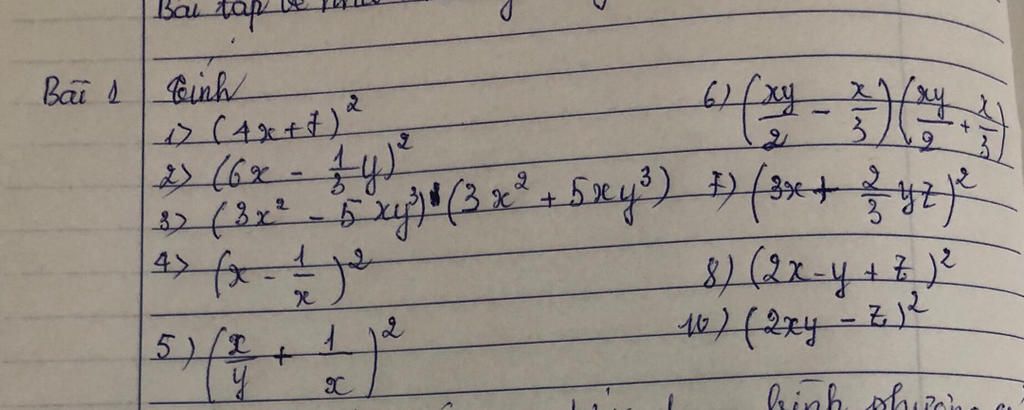 Bài tập về
Bài 1 Tính
1) (4x+7)²
2) (6x - 1/3 y)²
3) (3x² - 5xy³) (3x² + 5xy³)
4) (x - 1/x)²
5) (x/y + 1/x)²
6) (xy/2 - x/3)(xy/2 + x/3)
7) (3x + 2/3 yz)²
8) (2x - y + z)²
10) (2xy - z)²